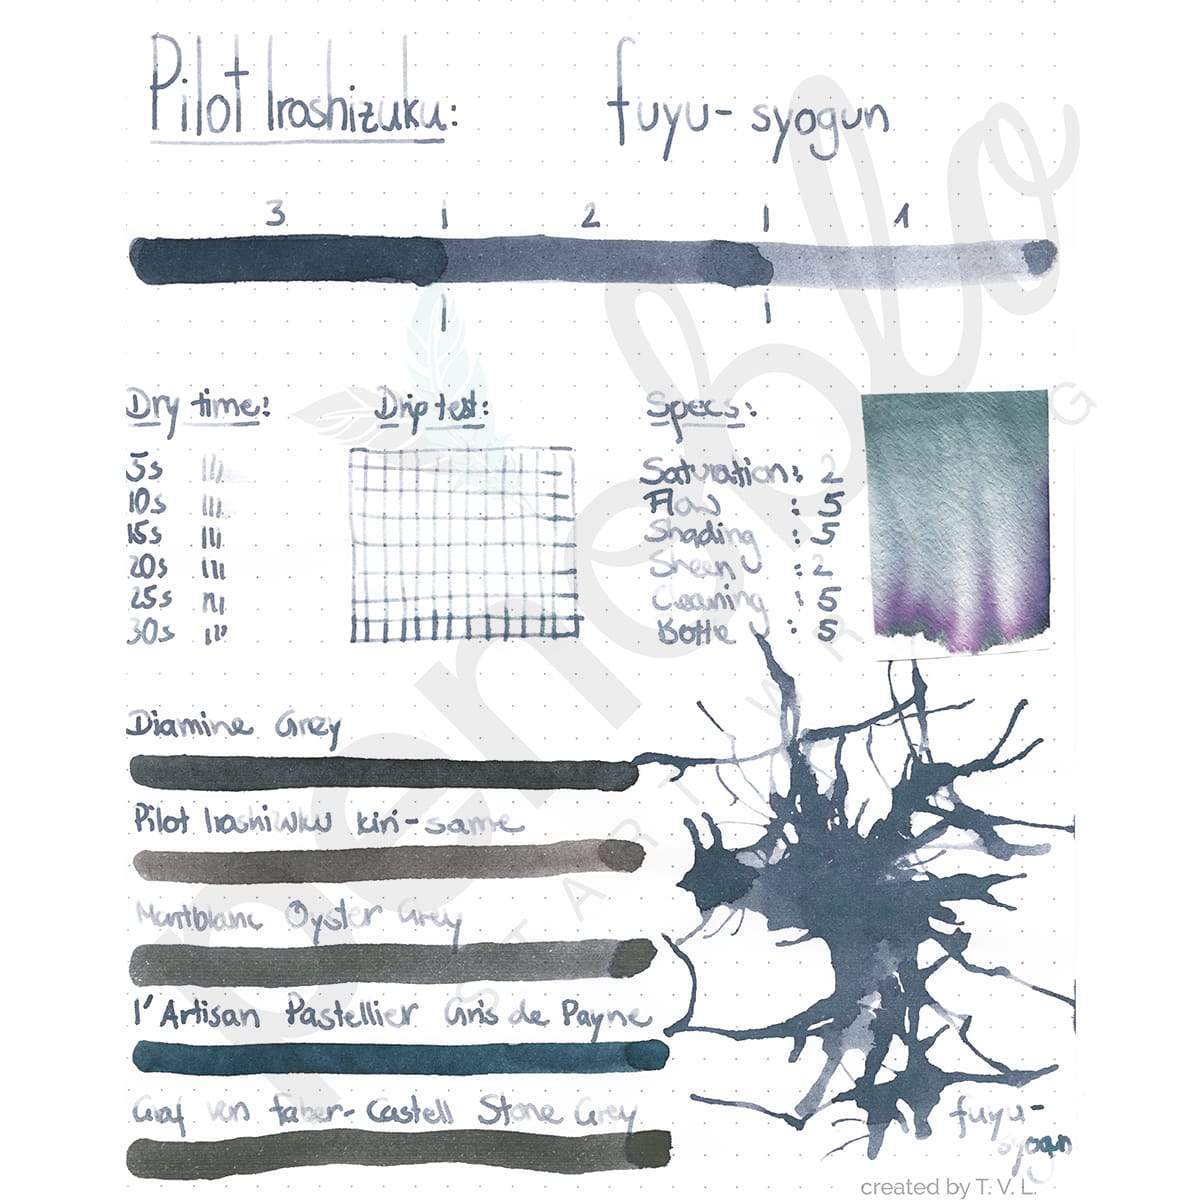 Pilot Iroshizuku: fuyu-syogun
3 | 2 | 1
Dry time: Drip test: Specs:
5s Saturation: 2
10s Flow : 5
15s Shading : 5
20s Sheen : 2
25s Cleaning : 5
30s Bottle : 5
Diamine Grey
Pilot Iroshizuku kiri-same
Montblanc Oyster Grey
l'Artisan Pastellier Gris de Payne
Graf von Faber-Castell Stone Grey
fuyu-
syogun
penoblo
START WRITING
created by T. V. L.